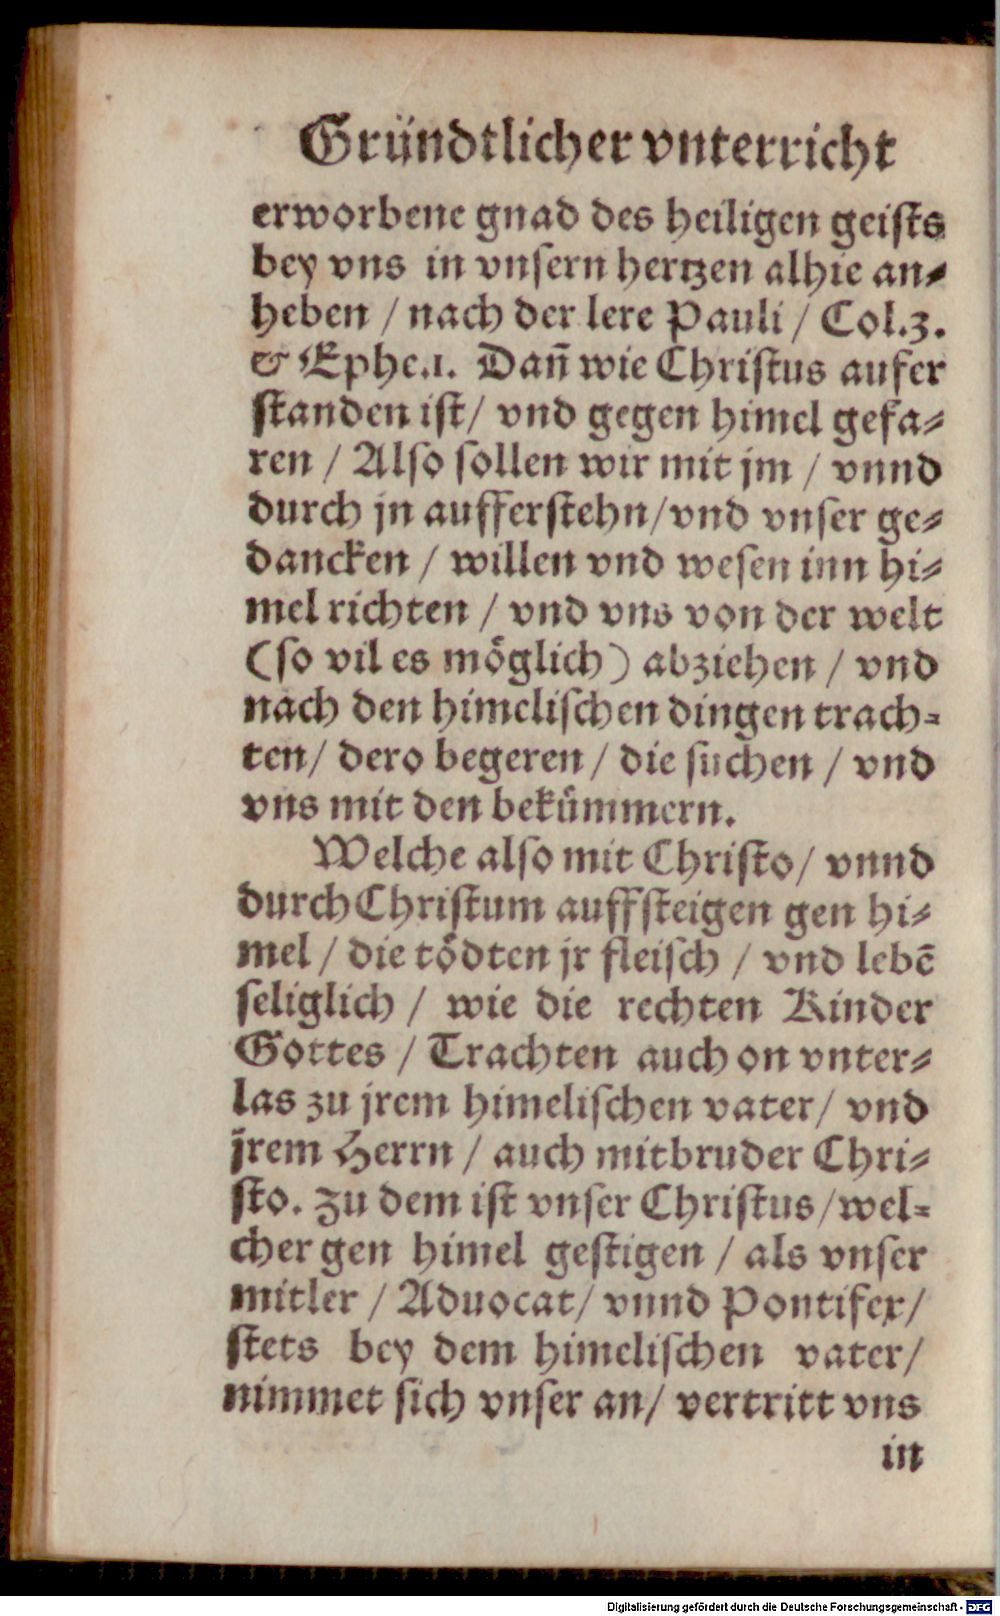 Gründtlicher vnterricht
erworbene gnad des heiligen geists
bey vns in vnsern hertzen alhie an⸗
heben / nach der lere Pauli / Col.3.
& Ephe.1. Dañ wie Christus aufer
standen ist / vnd gegen himel gefa⸗
ren / Also sollen wir mit jm / vnnd
durch jn aufferstehn / vnd vnser ge⸗
dancken / willen vnd wesen inn hi⸗
mel richten / vnd vns von der welt
(so vil es möglich) abziehen / vnd
nach den himelischen dingen trach⸗
ten / dero begeren / die suchen / vnd
vns mit den bekümmern.
Welche also mit Christo / vnnd
durch Christum auffsteigen gen hi⸗
mel / die tödten jr fleisch / vnd lebē
seliglich / wie die rechten Kinder
Gottes / Trachten auch on vnter⸗
las zu jrem himelischen vater / vnd
jrem Herrn / auch mitbruder Chri⸗
sto. Zu dem ist vnser Christus / wel⸗
cher gen himel gestigen / als vnser
mitler / Aduocat / vnnd Pontifex /
stets bey dem himelischen vater /
nimmet sich vnser an / vertritt vns
in
Digitalisierung gefördert durch die Deutsche Forschungsgemeinschaft - DFG